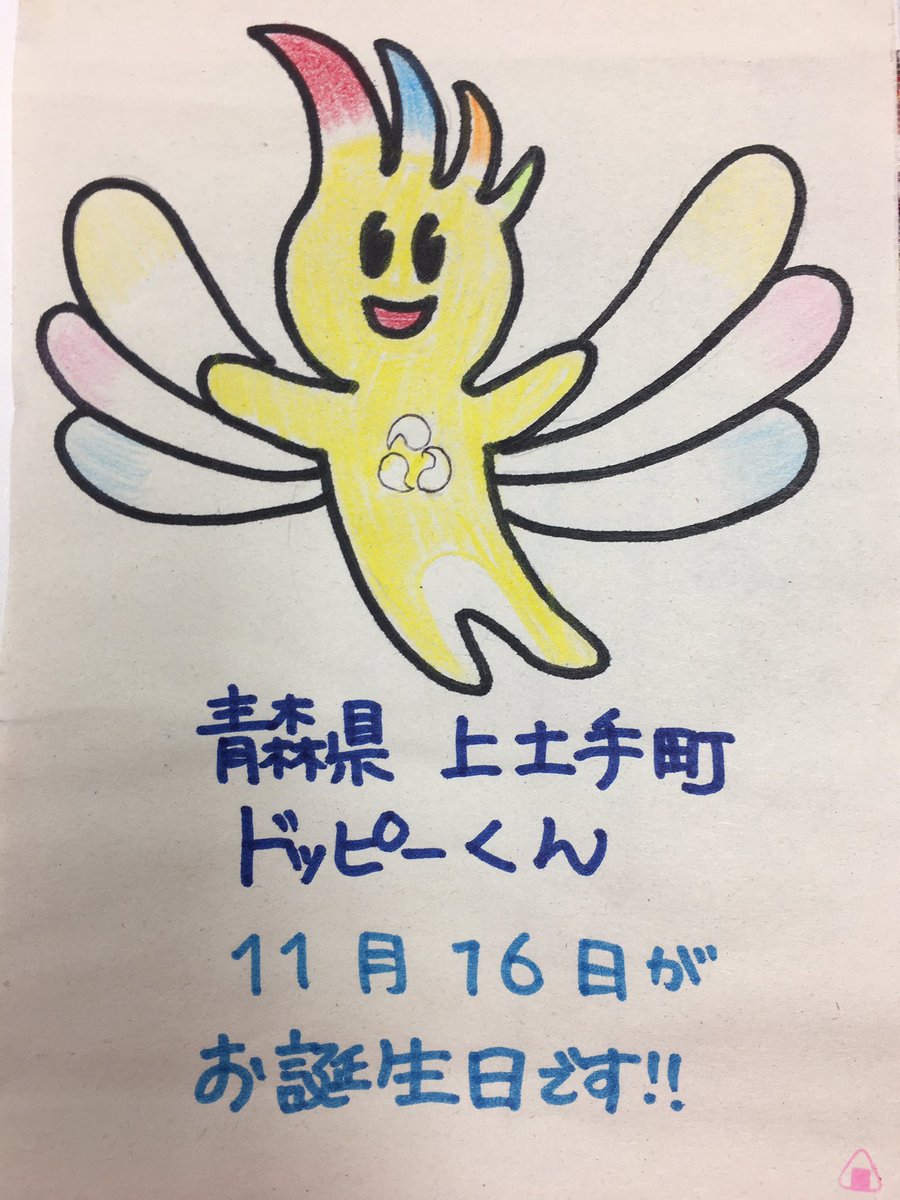 青森県 上土手町
ドッピーくん
11月16日が
お誕生日です!!